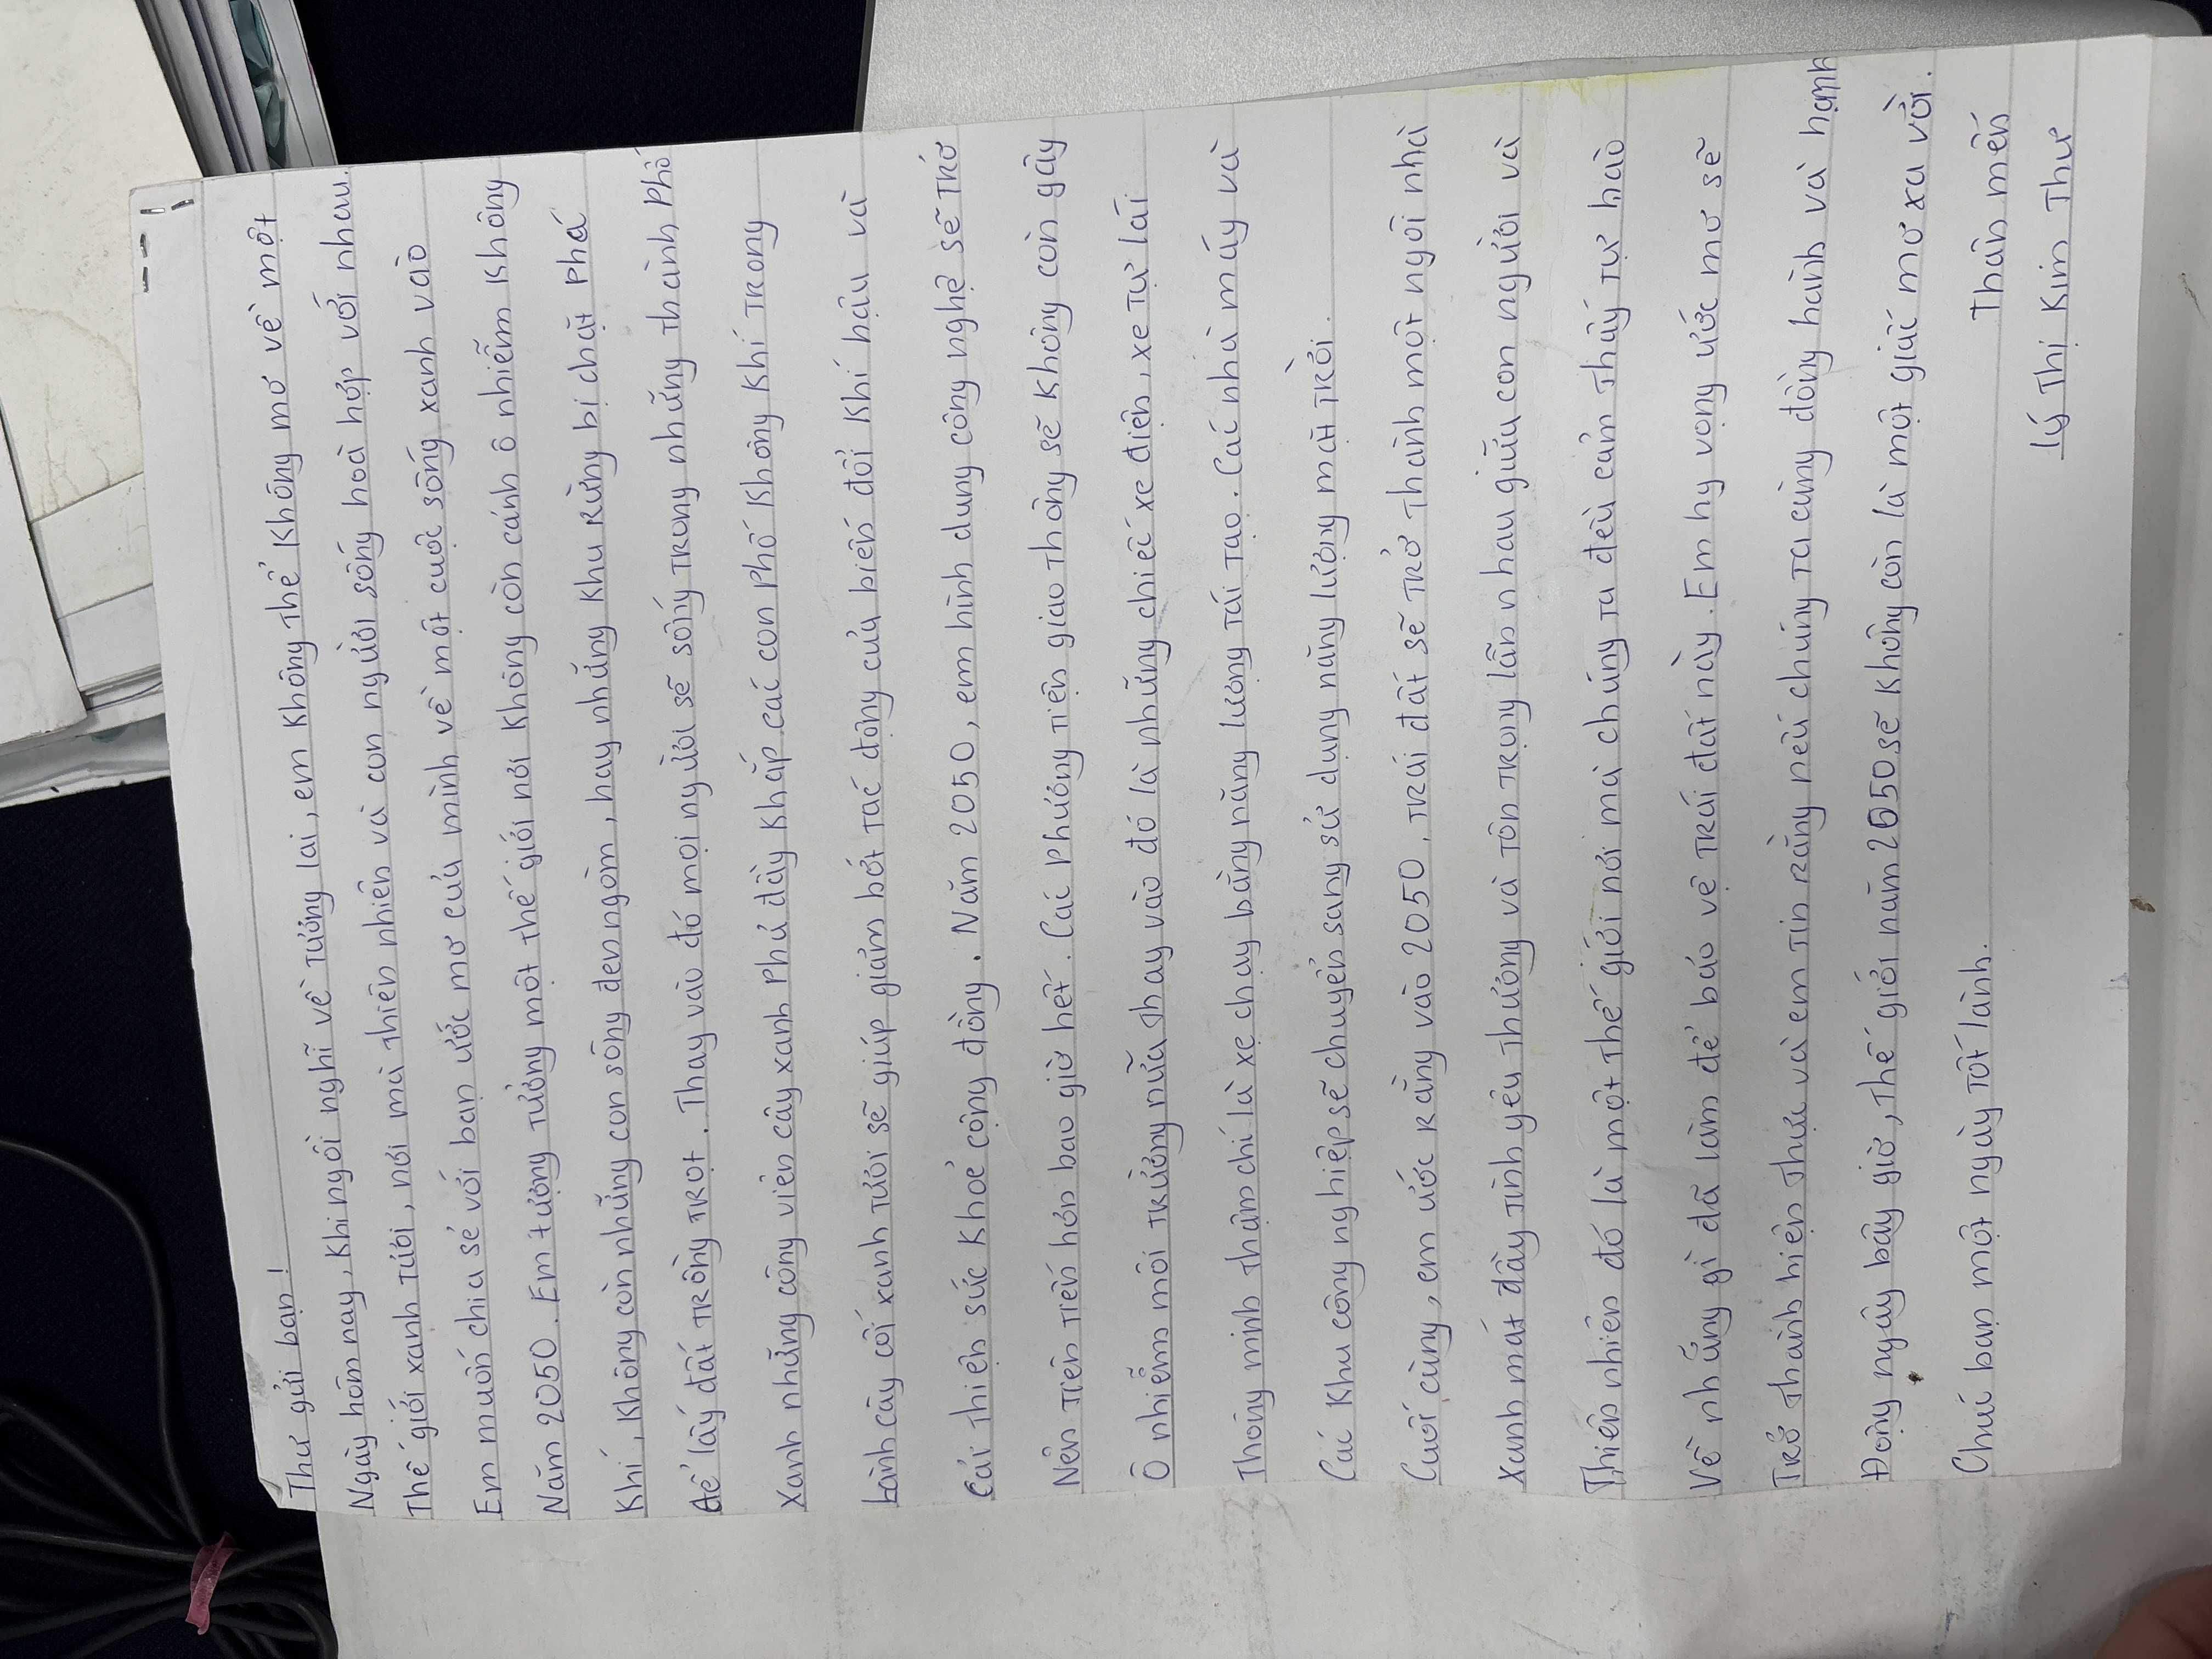 Thư gửi bạn!
Ngày hôm nay, khi ngồi nghĩ về tương lai, em không thể không mơ về một
Thế giới xanh tươi, nơi mà thiên nhiên và con người sống hoà hợp với nhau.
Em muốn chia sẻ với bạn ước mơ của mình về một cuộc sống xanh vào
Năm 2050. Em tượng tưởng một thế giới nơi không còn cảnh ô nhiễm không
Khí, không còn những con sông đen ngòm, hay những khu rừng bị chặt phá
để lấy đất trồng trọt. Thay vào đó mọi người sẽ sống trong những thành phố
Xanh những công viên cây xanh phủ đầy khắp các con phố không khí trong
Lành cây cối xanh tươi sẽ giúp giảm bớt tác động của biến đổi khí hậu và
cải thiện sức khoẻ cộng đồng. Năm 2050, em hình dung công nghệ sẽ trở
Nên tiên tiến hơn bao giờ hết. Các phương tiện giao thông sẽ không còn gây
Ô nhiễm môi trường nữa thay vào đó là những chiếc xe điện, xe tự lái
Thông minh thậm chí là xe chạy bằng năng lượng tái tạo. Các nhà máy và
Các khu công nghiệp sẽ chuyển sang sử dụng năng lượng mặt trời.
Cuối cùng, em ước rằng vào 2050, trái đất sẽ trở thành một ngôi nhà
Xanh mát đầy tình yêu thương và tôn trọng lẫn nhau giữa con người và
Thiên nhiên đó là một thế giới nơi mà chúng ta đều cảm thấy tự hào
Về những gì đã làm để bảo vệ trái đất này. Em hy vọng ước mơ sẽ
Trở thành hiện thực và em tin rằng nếu chúng ta cùng đồng hành và hành
Động ngay bây giờ, thế giới năm 2050 sẽ không còn là một giấc mơ xa vời.
Chúc bạn một ngày tốt lành.
Thân mến
Lý Thị Kim Thư